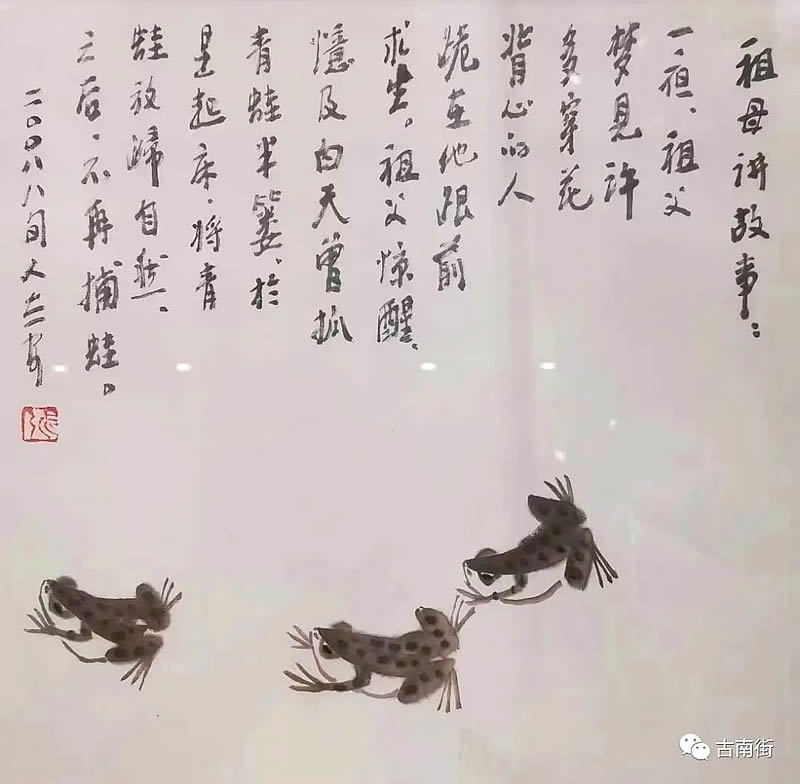 祖母讲故事：
一夜、祖父
梦见许
多穿花
背心的人
跪在他跟前
求生。祖父惊醒、
憶及白天曾抓
青蛙半篓、於
是起床、将青
蛙放归自然、
之后、不再捕蛙。
二〇〇八八旬
古南街